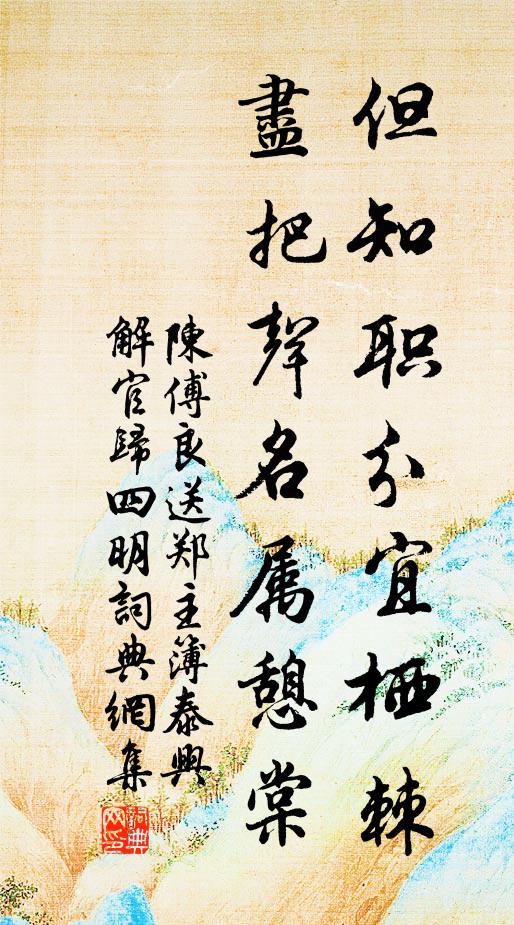 但知职分宜栖棘
盡把聲名属憩棠
陳傅良送郑主簿泰興
解官歸四明詞典網集
詞典网印